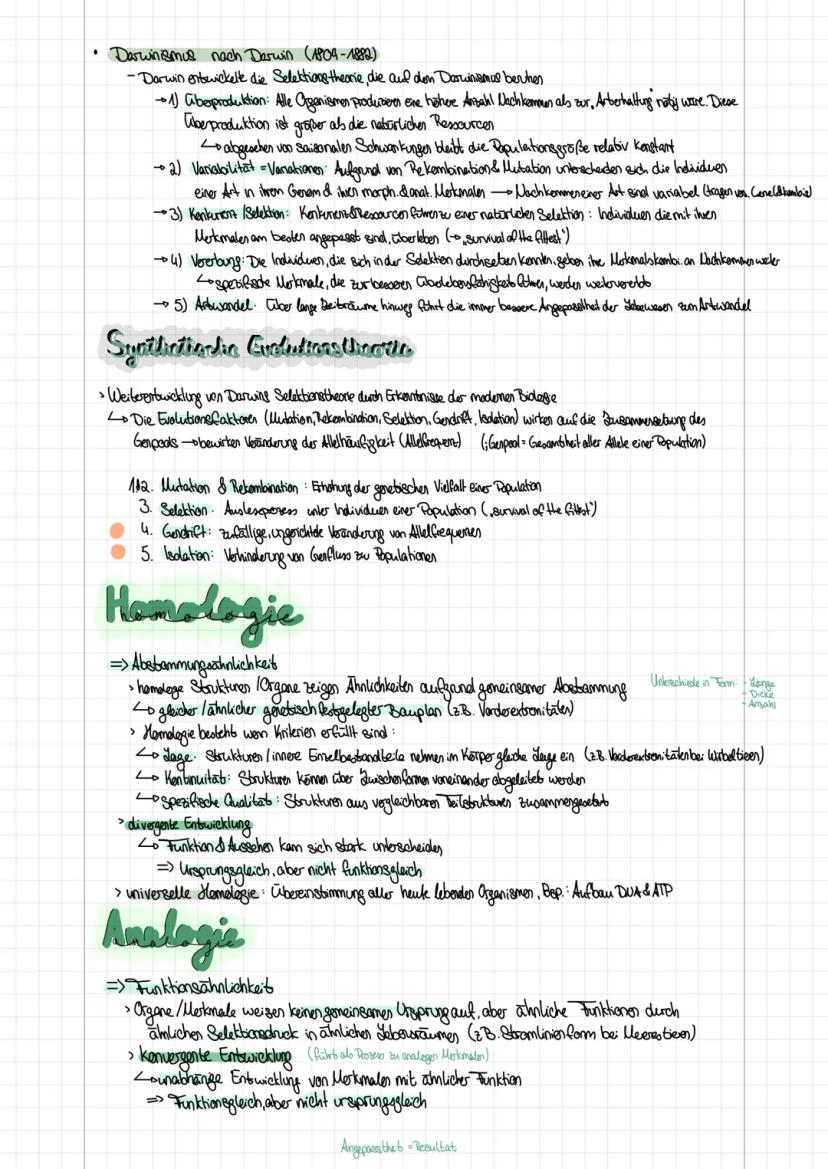 • Darwinismus nach Darwin (1809-1882)
- Darwin entwickelte die Selektionstheorie, die auf dem Darwinismus beruhen
→ 1) Überproduktion: Alle Organismen produzieren eine höhere Anzahl Nachkommen als zur „Arterhaltung" nötig wäre. Diese
Überproduktion ist größer als die natürlichen Ressourcen
↳ abgesehen von saisonalen Schwankungen bleibt die Populationsgröße relativ konstant
→ 2) Variabilität = Variationen: Aufgrund von Rekombination & Mutation unterscheiden sich die Individuen
einer Art in ihrem Genom & ihren morph. & anat. Merkmalen → Nachkommen einer Art sind variabel (tragen von
→ 3) Konkurrenz/Selektion: Konkurrenz & Ressourcen führen zu einer natürlichen Selektion: Individuen die mit ihren
Merkmalen am besten angepasst sind, überleben (→ „survival of the fittest")
→ 4) Vererbung: Die Individuen, die sich in der Selektion durchsetzen konnten, geben ihre Merkmalskombi. an Nachkommen weiter
↳ spezifische Merkmale, die zur besseren Überlebensfähigkeit führen, werden weitervererbt
→ 5) Artwandel: Über lange Zeiträume hinweg führt die immer bessere Angepasstheit der Lebewesen zum Artwandel
Synthetische Evolutionstheorie
> Weiterentwicklung von Darwins Selektionstheorie durch Erkenntnisse der modernen Biologie
↳ Die Evolutionsfaktoren (Mutation, Rekombination, Selektion, Gendrift, Isolation) wirken auf die Zusammensetzung des
Genpools → bewirken Veränderung der Allelhäufigkeit (Allelfrequenz) (; Genpool = Gesamtheit aller Allele einer Population)
1&2. Mutation & Rekombination: Erhöhung der genetischen Vielfalt einer Population
3. Selektion: Ausleseprozess unter Individuen einer Population („survival of the fittest")
4. Gendrift: zufällige, ungerichtete Veränderung von Allelfrequenzen
5. Isolation: Verhinderung von Genfluss zw Populationen
Homologie
=> Abstammungsähnlichkeit
> homologe Strukturen/Organe zeigen Ähnlichkeiten aufgrund gemeinsamer Abstammung
Unterschiede in Form: - Länge
- Dicke
- Anzahl
↳ gleicher/ähnlicher genetisch festgelegter Bauplan (z.B. Vorderextremitäten)
> Homologie besteht wenn Kriterien erfüllt sind:
↳ Lage: Strukturen/innere Einzelbestandteile nehmen im Körper gleiche Lage ein (z.B. Vorderextremitäten bei Wirbeltieren)
↳ Kontinuität: Strukturen können über Zwischenformen voneinander abgeleitet werden
↳ spezifische Qualität: Strukturen aus vergleichbaren Teilstrukturen zusammengesetzt
> divergente Entwicklung
↳ Funktion & Aussehen kann sich stark unterscheiden
=> Ursprungsgleich, aber nicht funktionsgleich
> universelle Homologie: Übereinstimmung aller heute lebenden Organismen, Bsp.: Aufbau DNA & ATP
Analogie
=> Funktionsähnlichkeit
> Organe/Merkmale weisen keinen gemeinsamen Ursprung auf, aber ähnliche Funktionen durch
ähnlichen Selektionsdruck in ähnlichen Lebensräumen (z.B. Stromlinienform bei Meerestieren)
> konvergente Entwicklung (führt als Prozess zu analogen Merkmalen)
↳ unabhänge Entwicklung von Merkmalen mit ähnlicher Funktion
=> Funktionsgleich, aber nicht ursprungsgleich
Angepasstheit = Resultat